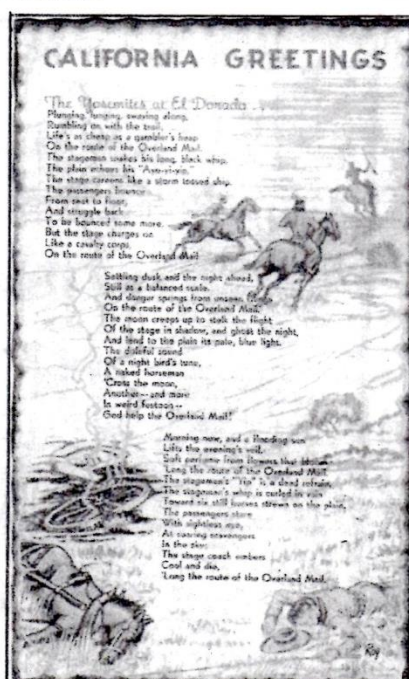 CALIFORNIA GREETINGS
The Yosemites at El Dorado
Plunging, lunging, swaying along,
Rumbling on with the trail,
Life's as cheap as a gambler's heap
On the route of the Overland Mail.
The stageman snakes his long, black whip,
The plain echoes his
The stage careens like a storm tossed ship,
The passengers bounce
From seat to floor,
And struggle back
To be bounced some more,
But the stage charges on
Like a cavalry corps,
On the route of the Overland Mail
Settling dusk and the night ahead,
Still as a balanced scale.
And danger springs from unseen
On the route of the Overland Mail.
The moon creeps up to stalk the flight
Of the stage in shadow, and ghost the night,
And lend to the plain its pale, blue light.
The doleful sound
Of a night bird's tune,
A naked horseman
'Cross the moon,
Another--and more
In weird festoon--
God help the Overland Mail!
Morning now, and a flooding sun
Lifts the evening's veil.
Soft perfume from flowers that
'Long the route of the Overland Mail.
The stageman's "Yip" is a dead refrain,
The stageman's whip is curled in vain
Toward six still horses strewn on the plain,
The passengers stare
With sightless eyes,
At soaring scavengers
In the sky;
The stage coach embers
Cool and die,
'Long the route of the Overland Mail.